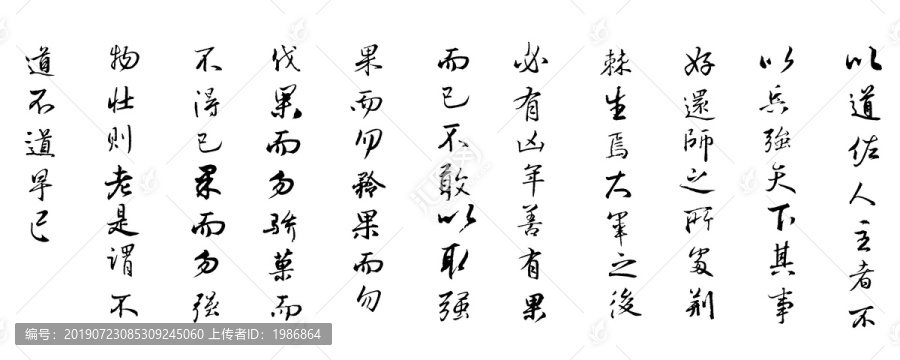 以道佐人主者不
以兵強天下其事
好還師之所處荆
棘生焉大軍之後
必有凶年善有果
而已不敢以取强
果而勿矜果而勿
伐果而勿骄菓而
不得已果而勿强
物壮则老是谓不
道不道早已
编号：20190723085309245060 上传者ID：1986864